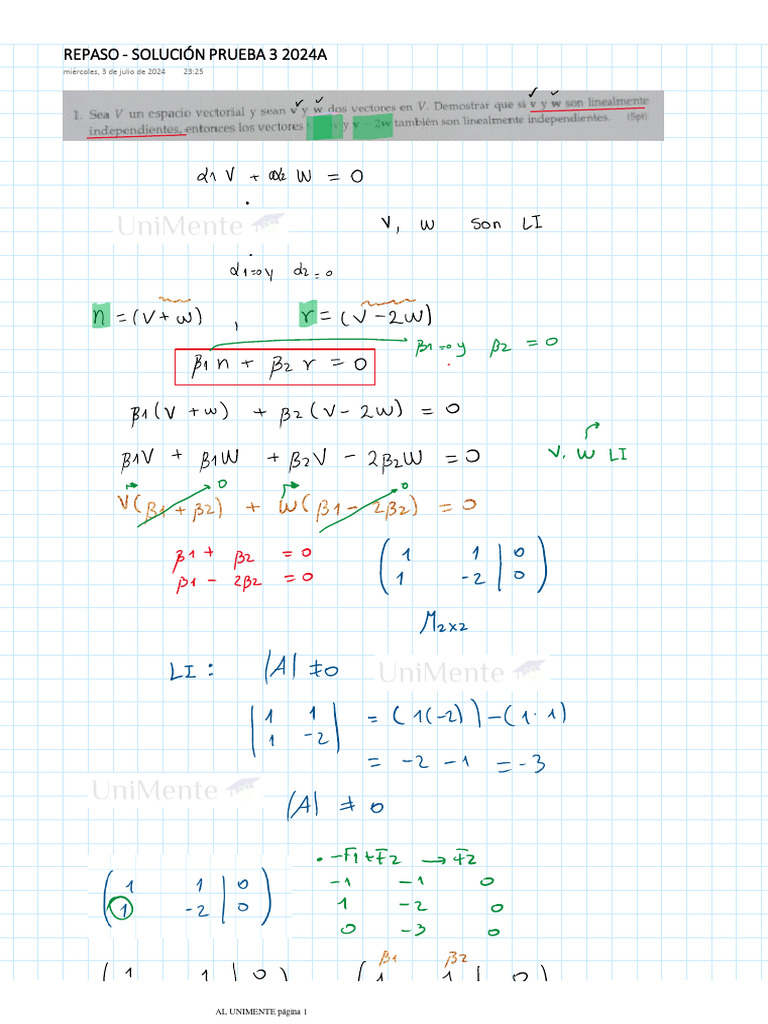 REPASO - SOLUCIÓN PRUEBA 3 2024A
miércoles, 3 de julio de 2024 23:25
1. Sea V un espacio vectorial y sean v y w dos vectores en V. Demostrar que si v y w son linealmente
independientes, entonces los vectores y v − 2w también son linealmente independientes. (5pt)
α1 V + α2 W = 0
UniMente
V, W son LI
α1=0 y α2=0
n = (V + W) , r = (V - 2W)
β1=0 y β2 = 0
β1 n + β2 r = 0
β1(V + W) + β2(V - 2W) = 0
β1V + β1W + β2V - 2β2W = 0
V, W LI
0 0
V(β1 + β2) + W(β1 - 2β2) = 0
β1 + β2 = 0 ( 1 1 | 0 )
β1 - 2β2 = 0 ( 1 -2 | 0 )
M2x2
LI: |A| ≠ 0 UniMente
| 1 1 | = (1(-2)) - (1·1)
| 1 -2 |
= -2 - 1 = -3
UniMente
|A| ≠ 0
• -F1+F2 → F2
( 1 1 | 0 ) -1 -1 0
( 1 -2 | 0 ) 1 -2 0
0 -3 0
β1 β2
( 1 1 | 0 ) ( 1 1 | 0 )
AL UNIMENTE página 1